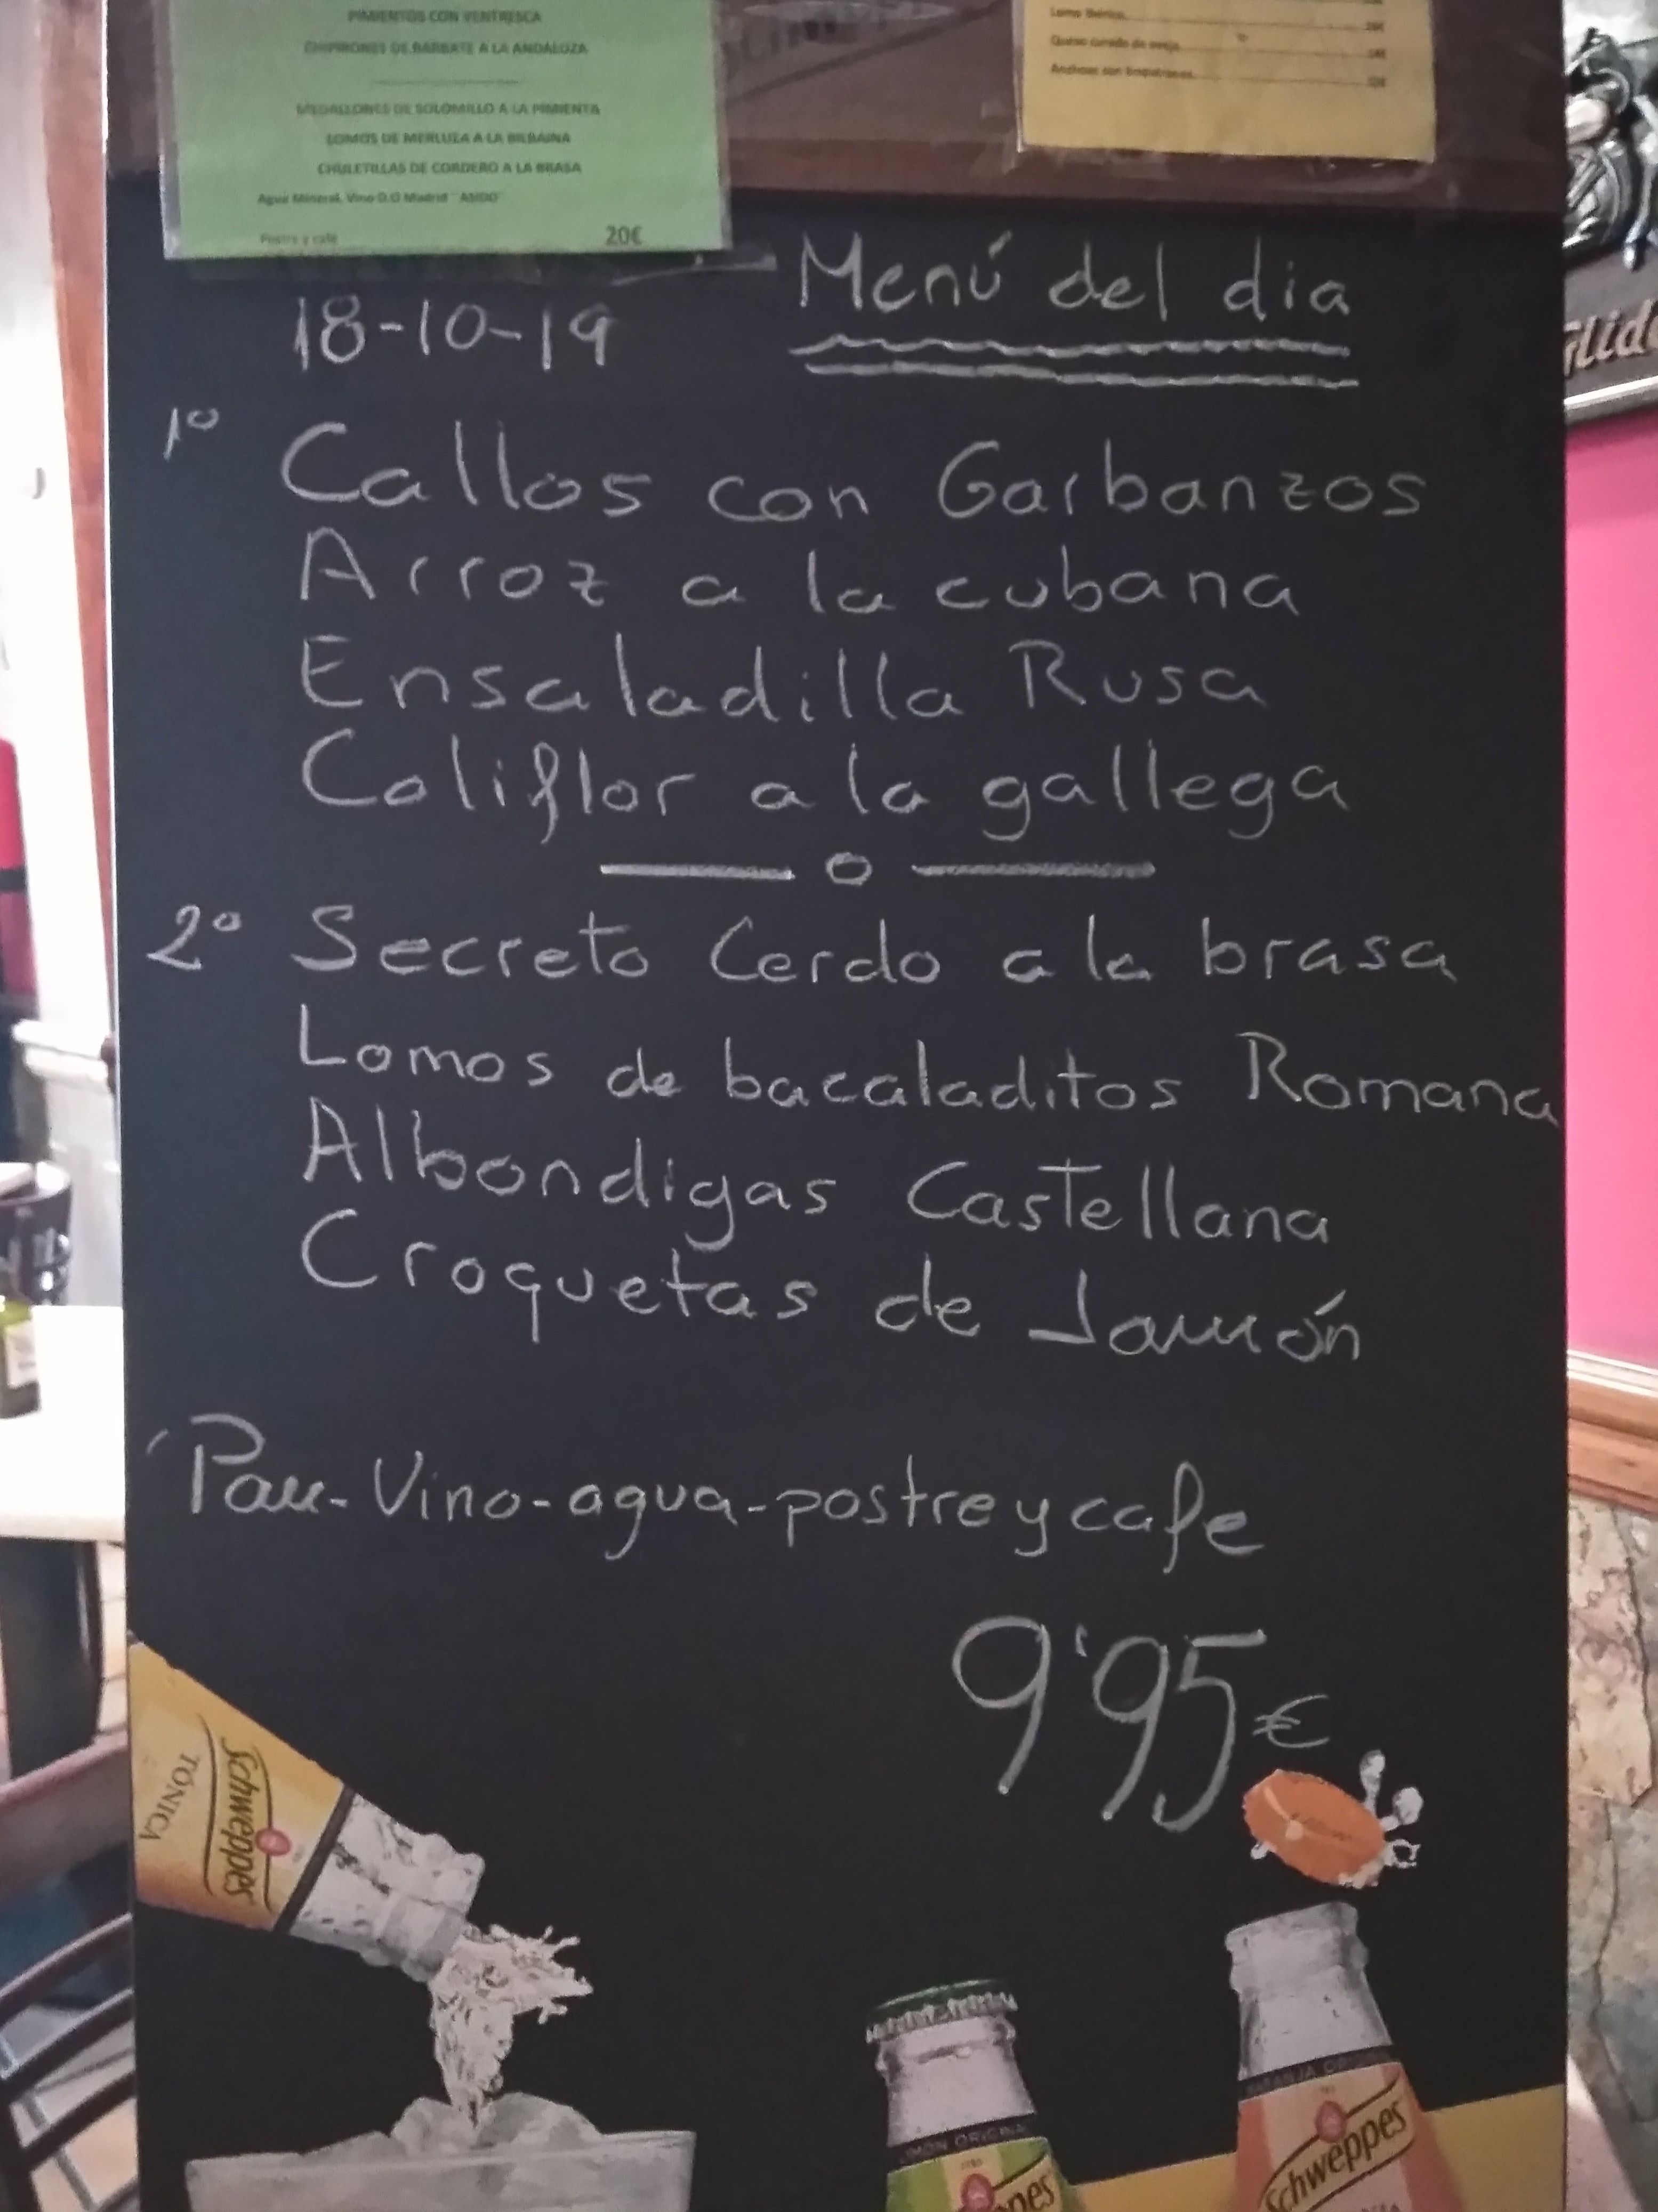 PIMIENTOS CON VENTRESCA
CHIPIRONES DE BARBATE A LA ANDALUZA
MEDALLONES DE SOLOMILLO A LA PIMIENTA
LOMOS DE MERLUZA A LA BILBAINA
CHULETILLAS DE CORDERO A LA BRASA
Agua Mineral, Vino D.O Madrid
Postre y café 20€
Lomo Ibérico
Queso curado de oveja
Anchoas con boquerones
Menú del dia
18-10-19
1º Callos con Garbanzos
Arroz a la cubana
Ensaladilla Rusa
Coliflor a la gallega
o
2º Secreto Cerdo a la brasa
Lomos de bacaladitos Romana
Albondigas Castellana
Croquetas de Jamón
Pan-Vino-agua-postre y cafe
9'95€
Schweppes
TÓNICA
LIMÓN ORIGINAL
Schweppes